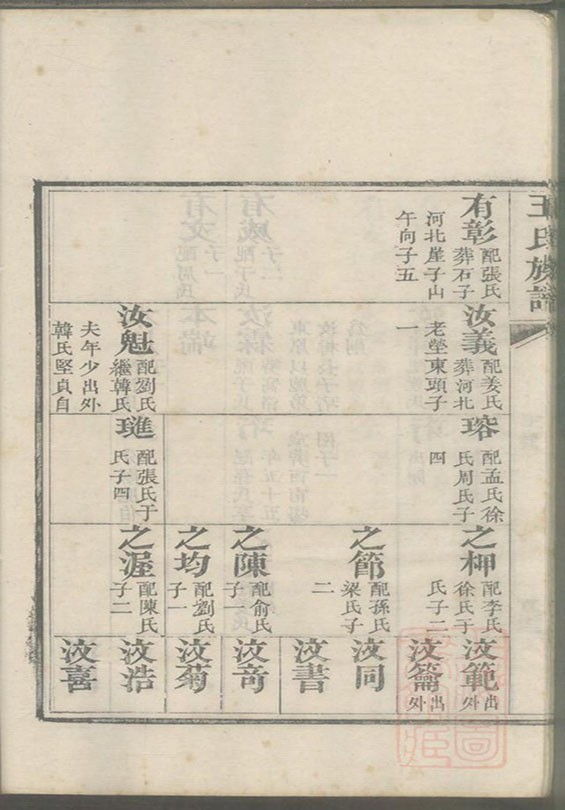 王氏族譜
有彰 配張氏
葬石子
河北崖子山
午向子五
汝義 配姜氏
葬河北
老塋東頭子
一
汝魁 配劉氏
繼韓氏
夫年少出外
韓氏堅貞自
瑢 配孟氏徐
氏周氏子
四
璡 配張氏于
氏子四
之柙 配李氏
徐氏于
氏子二
之節 配孫氏
梁氏子
二
之陳 配俞氏
子一
之均 配劉氏
子一
之渥 配陳氏
子二
汶範 出外
汶籥 出外
汶同
汶書
汶奇
汶菊
汶浩
汶喜